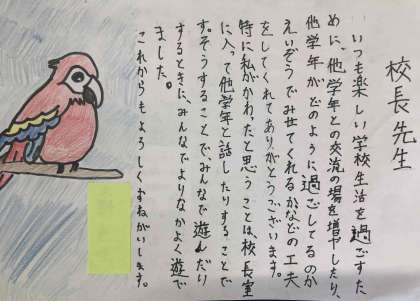 校長先生
いつも楽しい学校生活を過ごすた
めに、他学年との交流の場を増やしたり、
他学年がどのように過ごしてるのか
えいぞうでみせてくれるかなどの工夫
をしてくれてありがとうございます。
特に私がかわったと思うことは、校長室
に入って他学年と話したりすることで
す。そうすることで、みんなで遊んだり
するときに、みんなでよりなかよく遊べ
ました。
これからもよろしくおねがいします。